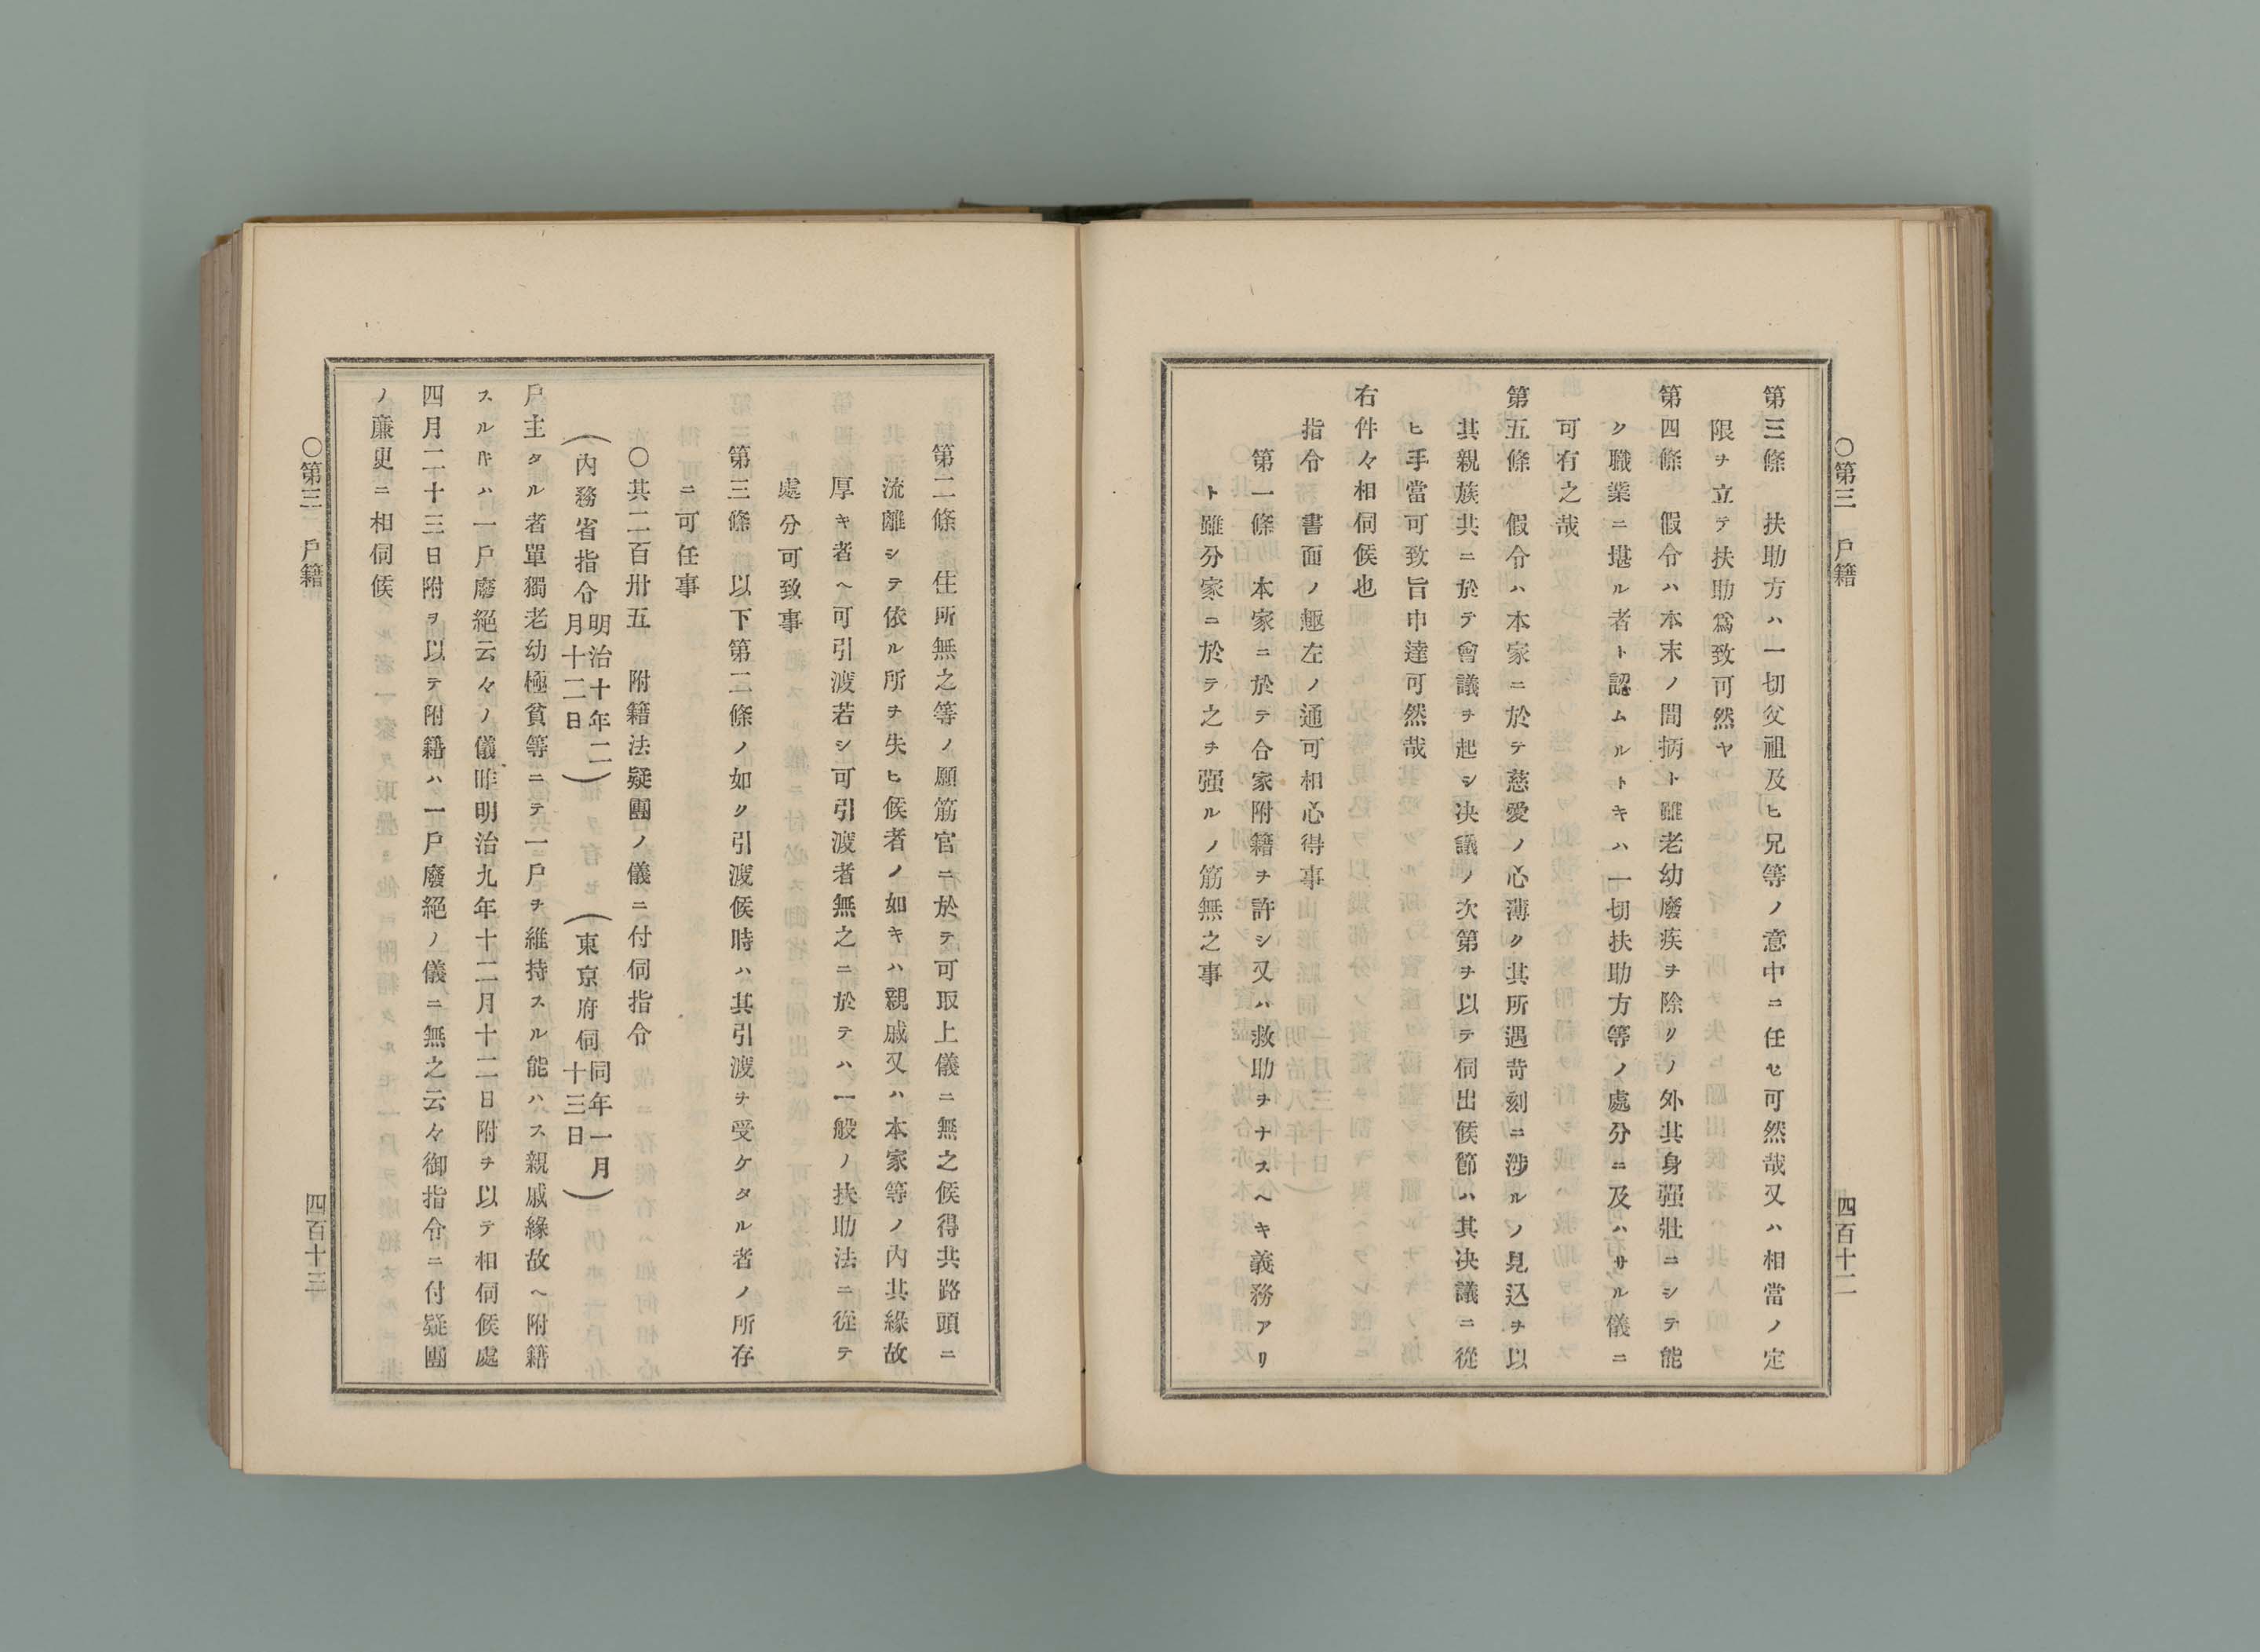 ○第三　戶籍　四百十二
第三條　扶助方ハ一切父祖及ヒ兄等ノ意中ニ任セ可然哉又ハ相當ノ定
限ヲ立テ扶助爲致可然ヤ
第四條　假令ハ本末ノ間柄ト雖老幼廢疾ヲ除クノ外其身强壯ニシテ能
ク職業ニ堪ル者ト認ムルトキハ一切扶助方等ノ處分ニ及ハサル儀ニ
可有之哉
第五條　假令ハ本家ニ於テ慈愛ノ心薄ク其所遇苛刻ニ涉ルノ見込ヲ以
其親族共ニ於テ會議ヲ起シ决議ノ次第ヲ以テ伺出候節ハ其决議ニ從
ヒ手當可致旨申達可然哉
右件々相伺候也
指令　書面ノ趣左ノ通可相心得事
第一條　本家ニ於テ合家附籍ヲ許シ又ハ救助ヲナスヘキ義務アリ
ト雖分家ニ於テ之ヲ强ルノ筋無之事
第二條　住所無之等ノ願筋官ニ於テ可取上儀ニ無之候得共路頭ニ
流離シテ依ル所ヲ失ヒ候者ノ如キハ親戚又ハ本家等ノ內其緣故
厚キ者ヘ可引渡若シ可引渡者無之ニ於テハ一般ノ扶助法ニ從テ
處分可致事
第三條　以下第二條ノ如ク引渡候時ハ其引渡ヲ受ケタル者ノ所存
ニ可任事
○其二百卅五　附籍法疑團ノ儀ニ付伺指令
（內務省指令明治十年二月十二日）　（東京府伺同年一月十三日）
戶主タル者單獨老幼極貧等ニテ一戶ヲ維持スル能ハス親戚緣故ヘ附籍
スル𪜈ハ一戶廢絕云々ノ儀昨明治九年十二月十二日附ヲ以テ相伺候處
四月二十三日附ヲ以テ附籍ハ一戶廢絕ノ儀ニ無之云々御指令ニ付疑團
ノ廉更ニ相伺候
○第三　戶籍　四百十三